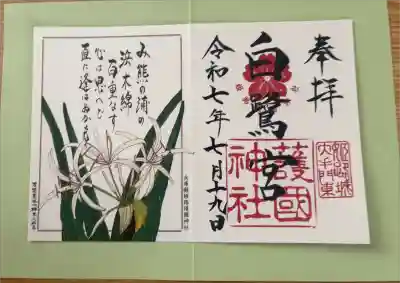 奉拝
姫路城
大手門東
白鷺宮
護國
神社
令和七年七月十九日
み熊の浦の
浜木綿
百重なす
心は思へど
直に逢はぬかも
兵庫縣姫路護國神社